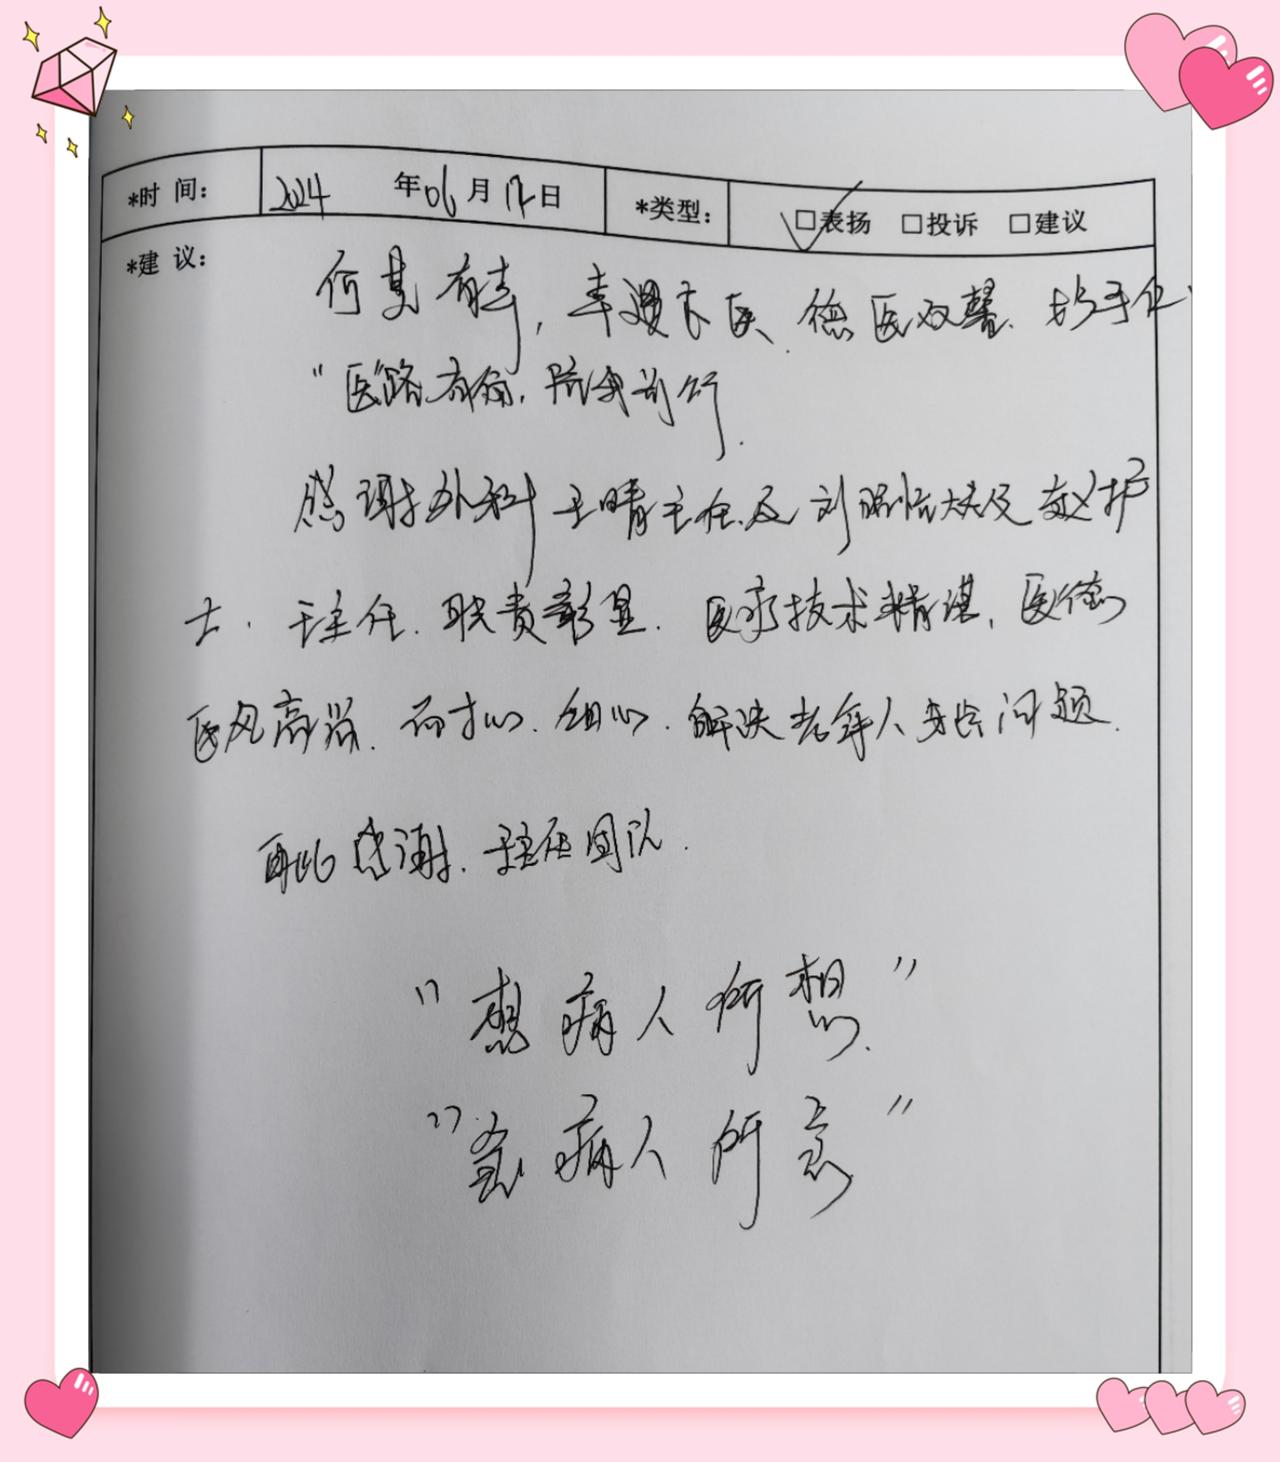 *时 间: 2024 年06月12日 *类型: □表扬 □投诉 □建议
*建 议: 何其有幸,幸遇良医.德医双馨.妙手仁
"医路有你.陪我前行.
感谢外科 王晴主任及刘 大夫及 护
士.王主任.职责彰显.医疗技术精湛.医德
医风高尚.而才心.细心.解决老年人 问题.
再次感谢.王主任团队.
"想病人所想"
"急病人所急"